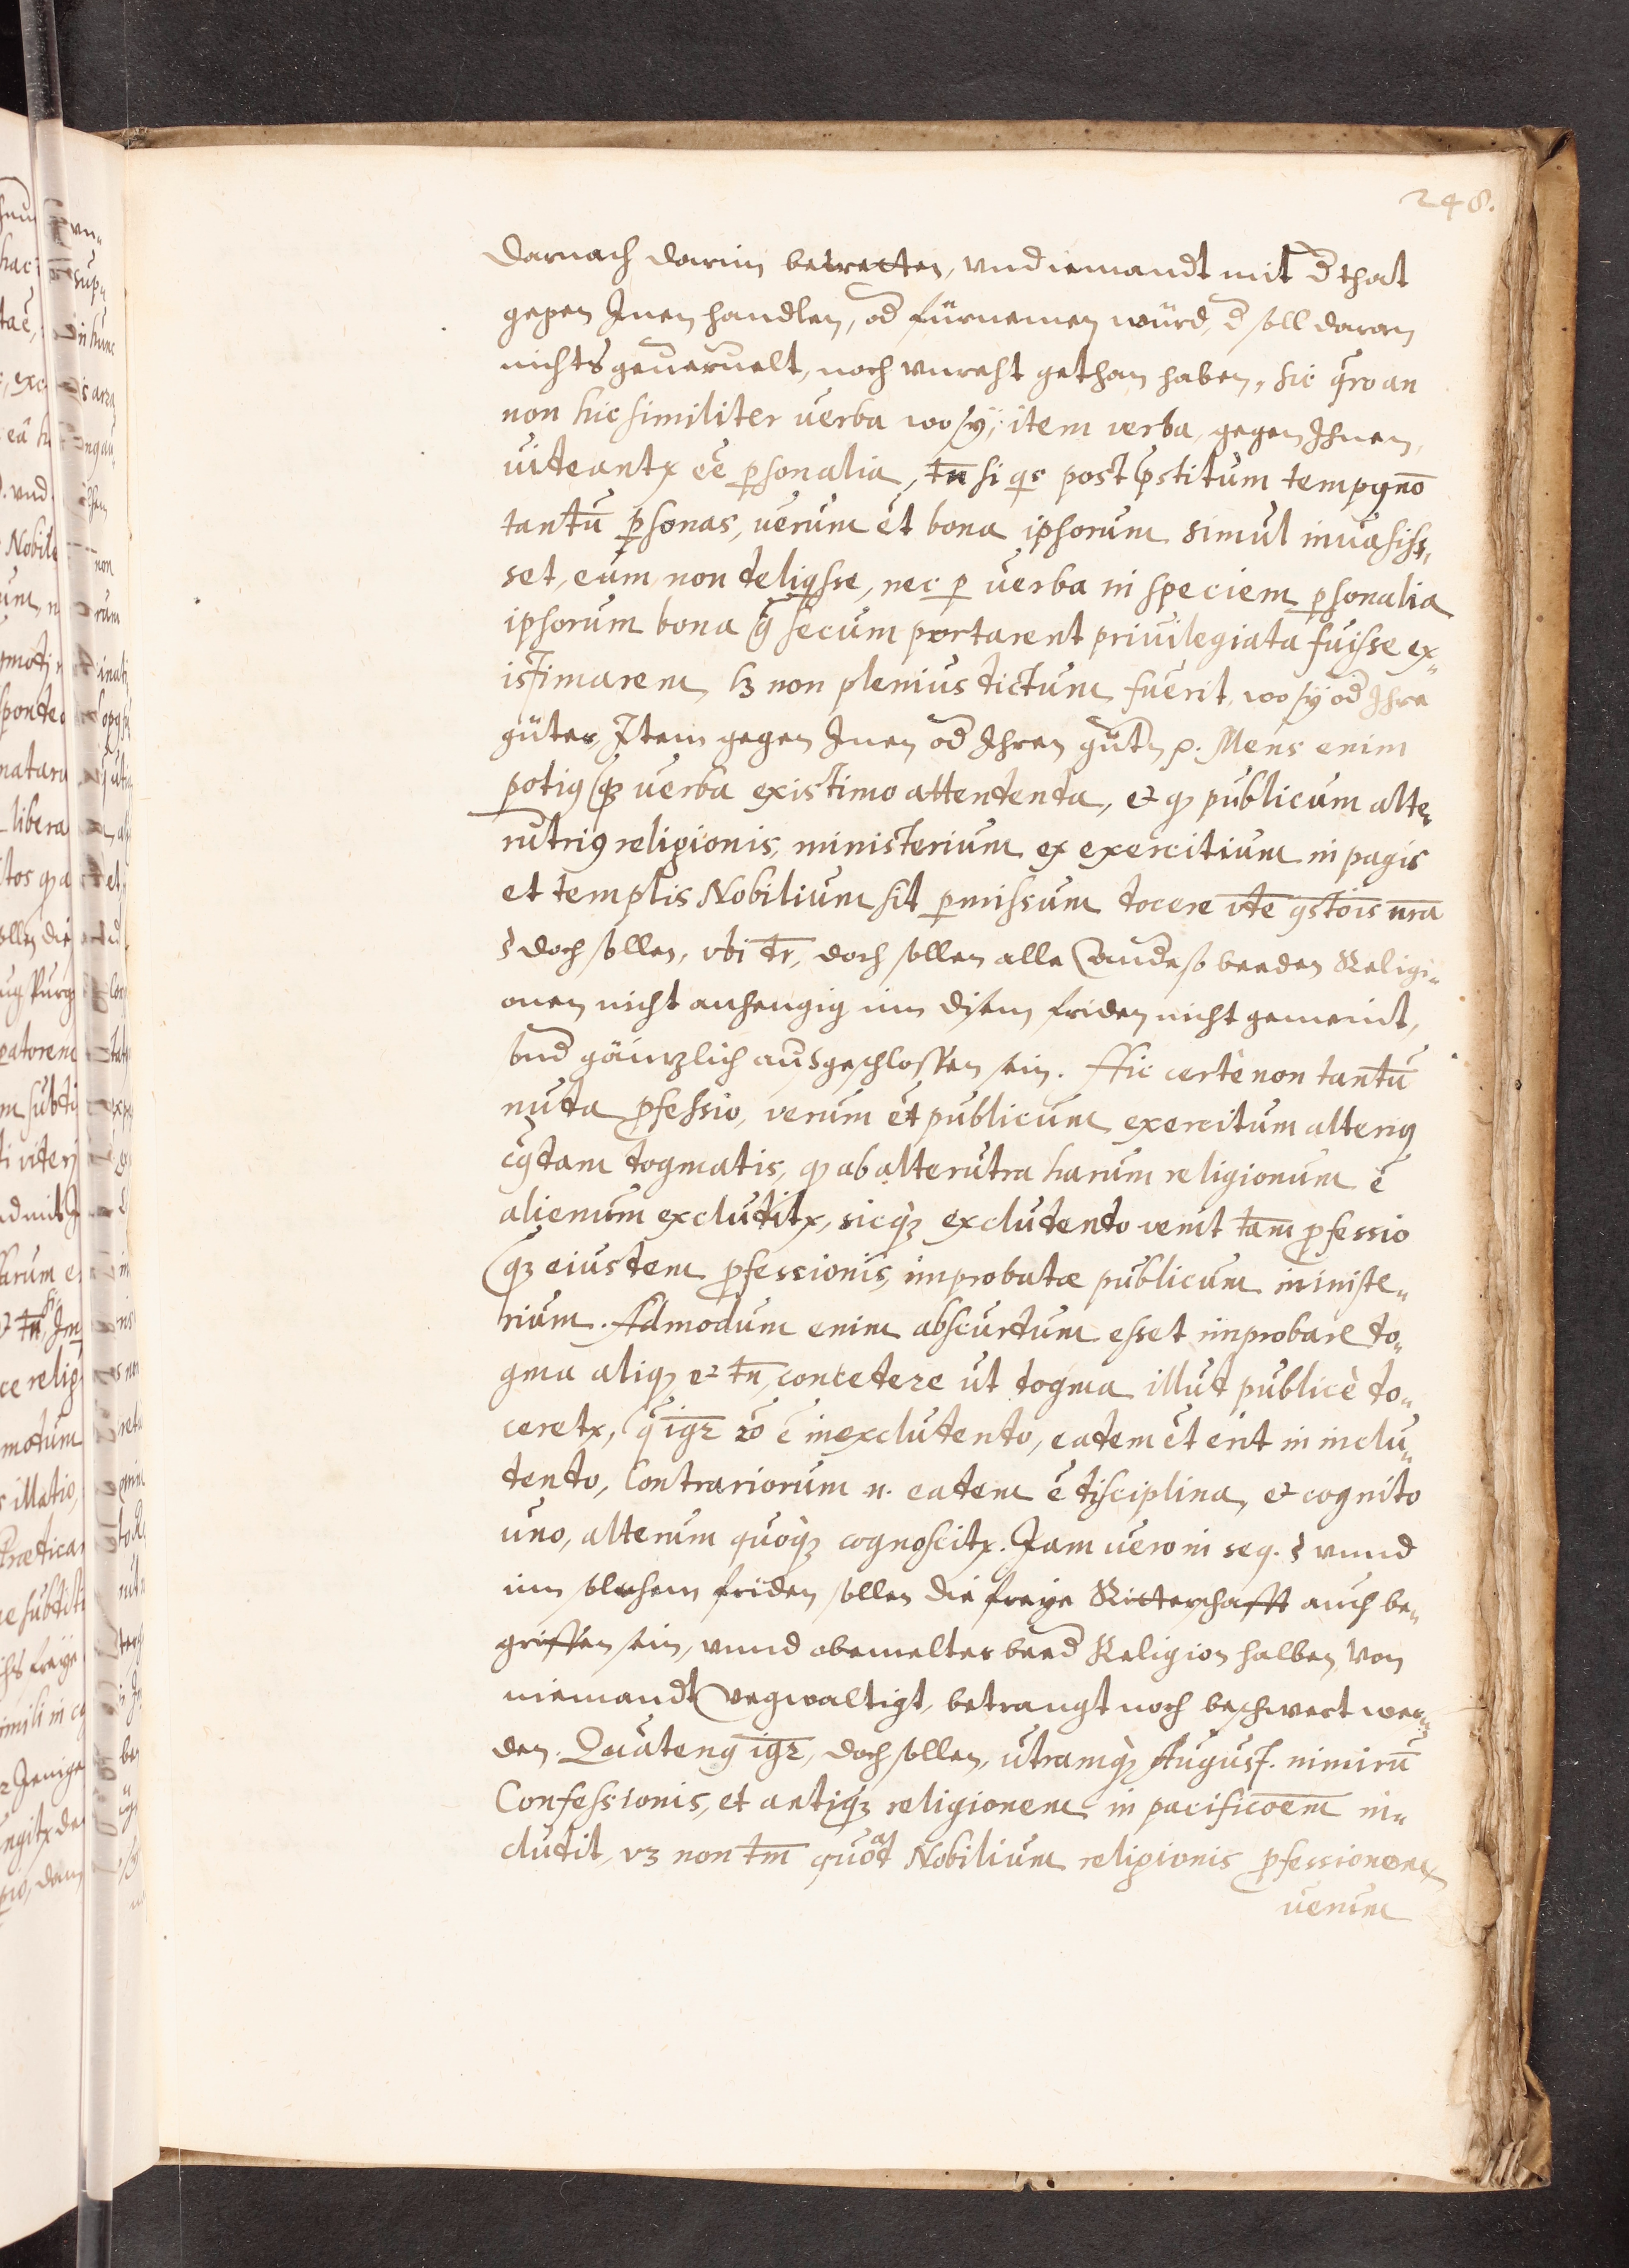 248.
darnach darinn betretten, vnd iemandt mit d̃ that
gegen Inen handlen, od̃ fürnemen würd, d̃ soll daran
nichts geuervelt, noch vnreht gethan haben, sic q̃ro an
non hic similiter verba wo sÿ, item verba, gegen Ihnen,
videantꝛ ēē ꝑsonalia, tn̄ si qs post p̄stitum tempꝯ nō
tantū ꝑsonas, verum et bona ipsorum simul inuasis,,
set, eum non deliqsse, nec ꝑ verba in speciem ꝑsonalia
ipsorum bona q̃ secum portarent priuilegiata fuisse ex,,
istimarem, lꝫ non plenius dictum fuerit, wo sÿ od̃ Ihre
güter, Item gegen Inen od̃ Ihren gütn̄ ꝛc. Mens enim
potiꝯ qꝫ verba existimo attendenda, et qꝫ publicum alte,,
rutriꝯ religionis, ministerium ex exercitium in pagis
et templis Nobilium sit ꝑmissum docere vt̄e qstōis nr̄a
§ doch sollen, vbi dr̄, doch sollen alle andˀe so beeden Religi,,
onen nicht anhengig inn disem friden nicht gemeint,
vnd gäintzlich ausgeschlossen sein. Hic certè non tantū
nuda ꝓfessio, verum et publicum exercitum alteriꝯ
cꝯdam dogmatis, qꝫ ab alterutra harum religionum ē
alienum excluditꝛ, sicqꝫ excludendo venit tam̄ ꝓfessio
qꝫ eiusdem ꝓfessionis, improbatæ publicum ministe,,
rium. Admodum enim abscurdum esset improbare do,,
gma aliqꝫ et tn̄ concedere ut dogma illud publicè do,,
ceretꝛ, q̃ igr̄ rō ē in excludendo, eadem et erit in inclu,,
dendo, Contrariorum n. eadem ē disciplina, et cognito
uno, alterum quoqꝫ cognoscitꝛ. Iam uero in seq. § vnnd
inn solchem friden sollen die freye Ritterschafft auch be,,
griffen sein, vnnd obemelter beed̃ Religion halben von
niemandt vergwaltigt, betrangt noch beschwert wer,,
den. Quatenꝯ igr̄, doch sollen, utramqꝫ August. nimirū
Confessionis, et antiqꝫ religionem in pacificoēm in,,
cludit, vꝫ non tm̄ quoad Nobilium religionis ꝓfessionem
verum